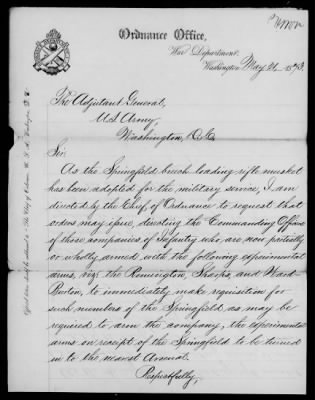 Ordnance Office,
War Department,
Washington May 21, 1873.
The Adjutant General,
U.S. Army,
Washington, D.C.
Sir:
As the Springfield breech loading rifle musket
has been adopted for the military service, I am
directed by the Chief of Ordnance to request that
orders may issue, directing the Commanding Officers
of those companies of Infantry who are now partially
or wholly armed with the following experimental
arms, viz: the Remington, Sharps, and Ward-
Burton, to immediately make requisition for
such numbers of the Springfield as may be
required to arm the company, the experimental
arms on receipt of the Springfield to be turned
in to the nearest Arsenal.
Respectfully,